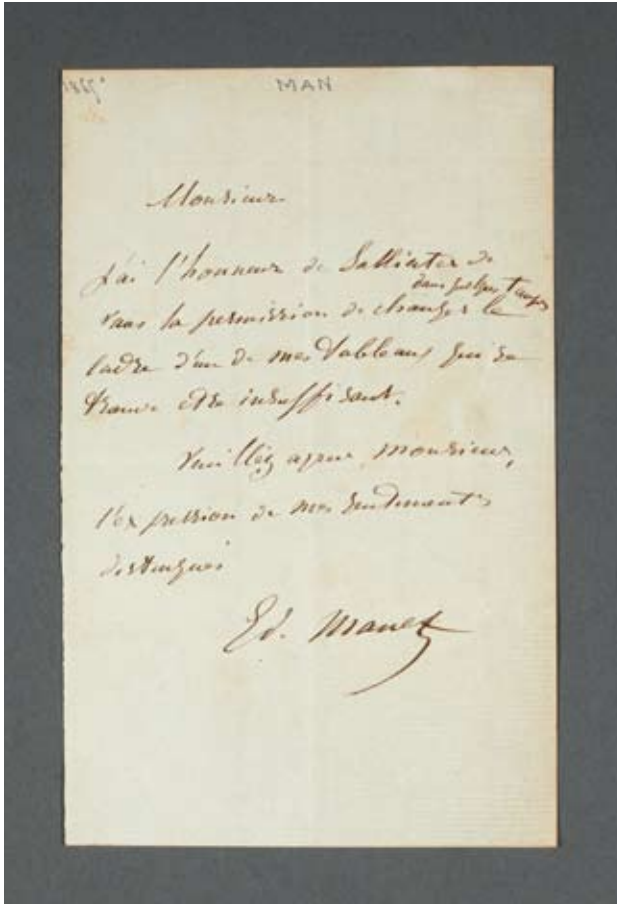 MAN
Monsieur
J'ai l'honneur de solliciter de
dans quelque temps
vous la permission de changer le
cadre d'un de mes tableaux qui se
trouve être insuffisant.
Veuillez agréer, monsieur,
l'expression de mes sentiments
distingués
Ed. Manet